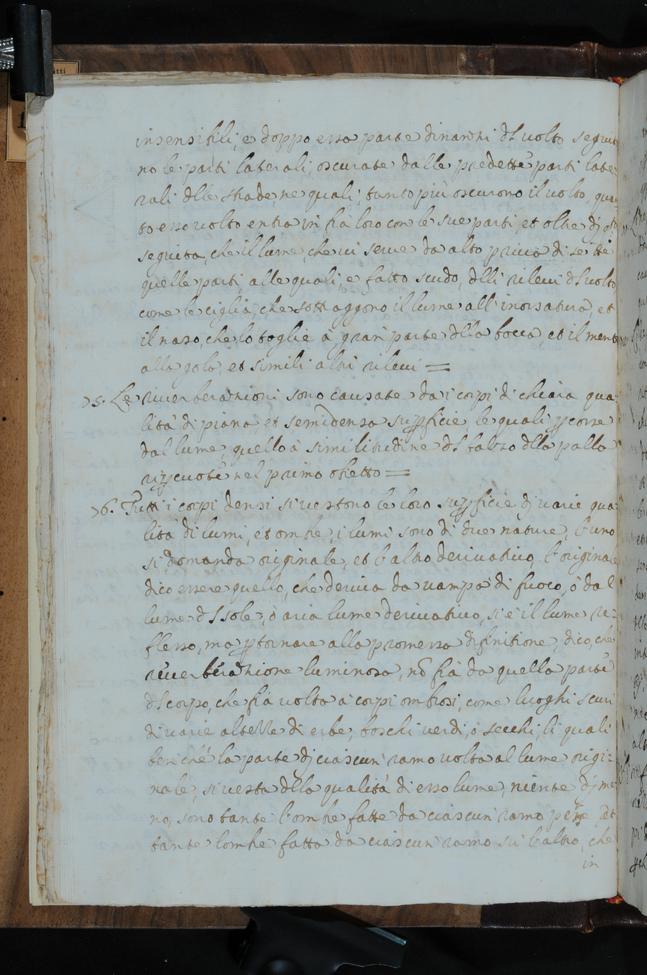 insensibili e doppo essa parte dinanzi del volto seguo
no le parti laterali oscurate dalle predette parti late
rali delle strade ne quali, tanto più oscurono il volto, qua
to esso volto entra in frà loro con le sue parti, et oltre di q
seguita, che il lume che ui serue da alto priua di se tte
quelle parti, alle quali e fatto scudo, dlli rileui del uolto
come le ciglia, che sott aggono il lume all' incassatura, et
il naso, che lo toglie a gran parte dlla bocca, et il mento
alla gola, et simili altri rileui =
75. Le riuerberationi sono causate da i corpi di chiara qua
lità di piana et semidensa superficie, le quali percosse
dal lume, quello à similitudine del balzo dlla palla
ripercuote nel primo obietto =
76. Tutti i corpi densi si uestono le loro superficie di uarie qua
lità di lumi, et ombre, i lumi sono di due nature, l'uno
si domanda originale, et l'altro deriuatiuo, l'originale
dico essere quello, che deriua da uampa di fuoco, ò dal
lume del sole, ò aria lume deriuatiuo, si è il lume re
flesso, ma per tornare alla promessa difinitione, dico, che
riuerberatione luminosa, nõ fià da quella parte
del corpo, che fià uolta à corpi ombrosi, come luoghi scuri
di uarie altezze di erbe, boschi uerdi, ò secchi, li quali
benché la parte di ciascun ramo uolta al lume origi-
nale, si uesta dlla qualità di esso lume, niente di me
no, sono tante l'ombre fatte da ciascun ramo per se et
tante lombre fatta da ciascun ramo sù l'altro, che
in